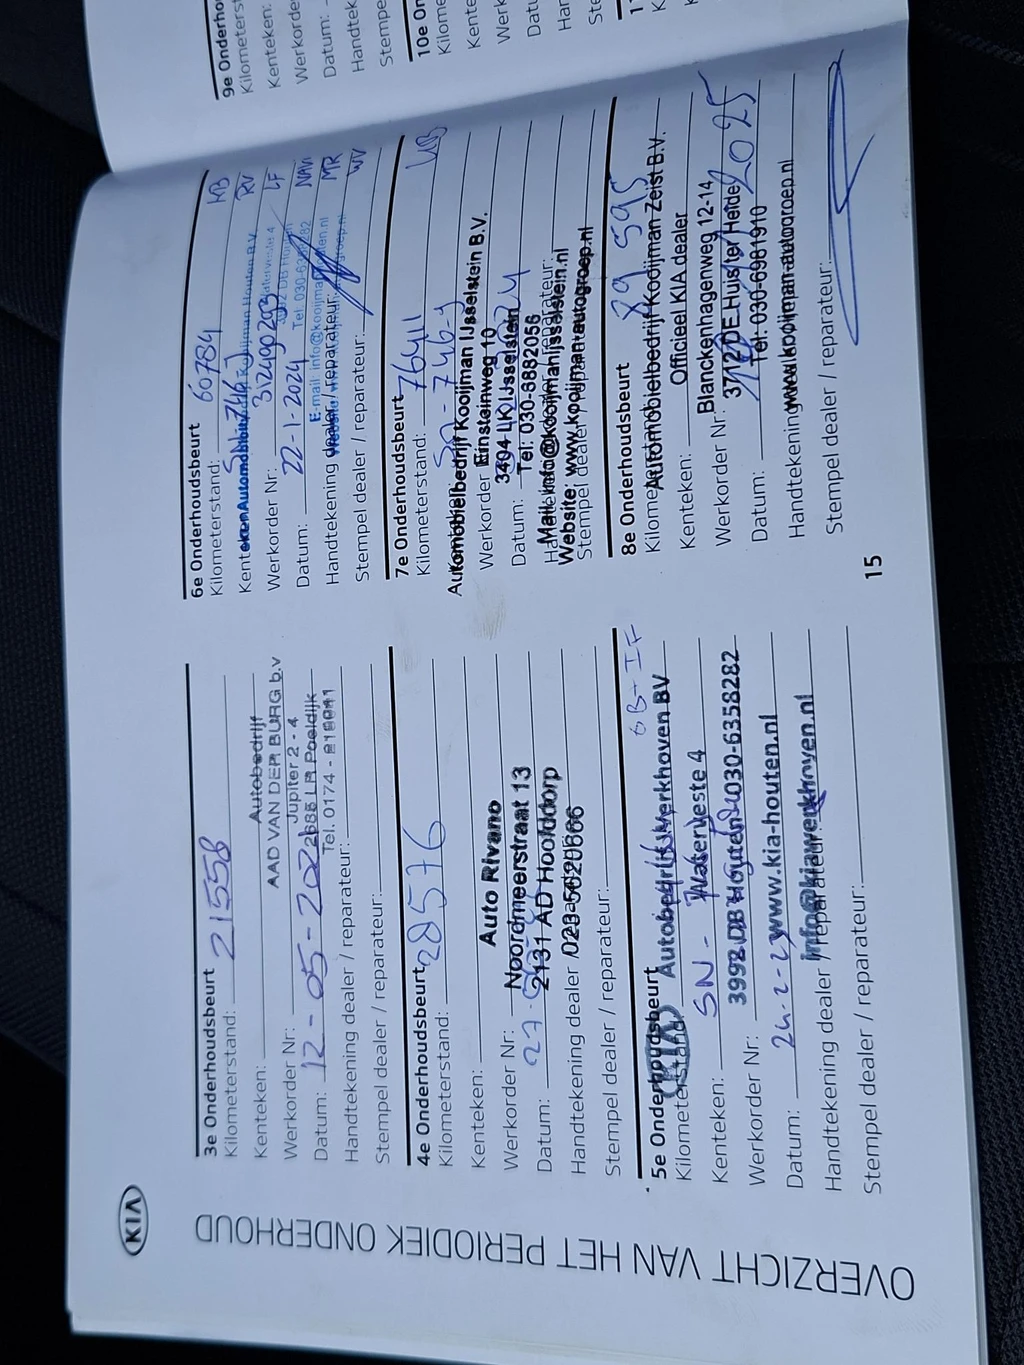 KIA
OVERZICHT VAN HET PERIODIEK ONDERHOUD
3e Onderhoudsbeurt
Kilometerstand: 21558
Kenteken:
Autobedrijf
AAD VAN DER BURG b.v
Werkorder Nr:
Jupiter 2 - 4
2685 LP Poeldijk
Datum: 12-05-202
Tel. 0174 -
Handtekening dealer / reparateur:
Stempel dealer / reparateur:
4e Onderhoudsbeurt
Kilometerstand: 28576
Kenteken:
Auto Rivano
Werkorder Nr:
Noordmeerstraat 13
2131 AD Hoofddorp
Datum: 27-
Handtekening dealer /
023-5020666
Stempel dealer / reparateur:
5e Onderhoudsbeurt
OB-IF
KIA
Werkhoven BV
Kenteken: SN-
Waterveste 4
3992 DB Houten 030-6358282
Werkorder Nr:
www.kia-houten.nl
Datum: 24-2-2
info@kiawerkhoven.nl
Handtekening dealer / reparateur:
Stempel dealer / reparateur:
6e Onderhoudsbeurt
Kilometerstand: 60784 MB
RV
SN-746-J
Kooijman Houten B.V.
Werkorder Nr: 312490203 LF
Waterveste 4
Datum: 22-1-2024 NAVI
Tel. 030-6358282
E-mail info@kooijman
Handtekening dealer / reparateur: MR
Stempel dealer / reparateur: WV
7e Onderhoudsbeurt
Kilometerstand: 76411 MB
SN-746-J
Automobielbedrijf Kooijman IJsselstein B.V.
Werkorder
Einsteinweg 10
3404 LK IJsselstein
Datum:
Tel: 030-6882056
Mail: info@kooijmanijsselstein.nl
Website: www.kooijmanautogroep.nl
Stempel dealer / reparateur:
8e Onderhoudsbeurt
89 595
Automobielbedrijf Kooijman Zeist B.V.
Officieel KIA dealer
Kenteken:
Blanckenhagenweg 12-14
Werkorder Nr:
3712 DE Huis ter Heide
Datum: 2025
Tel: 030-6981910
Handtekening
www.kooijman-autogroep.nl
Stempel dealer / reparateur:
15
9e Onderho
Kilometerst
Kenteken:
Werkorde
Datum:
Handtek
Stempe
10e On
Kilome
Kente
Werk
Datu
Han
Ste